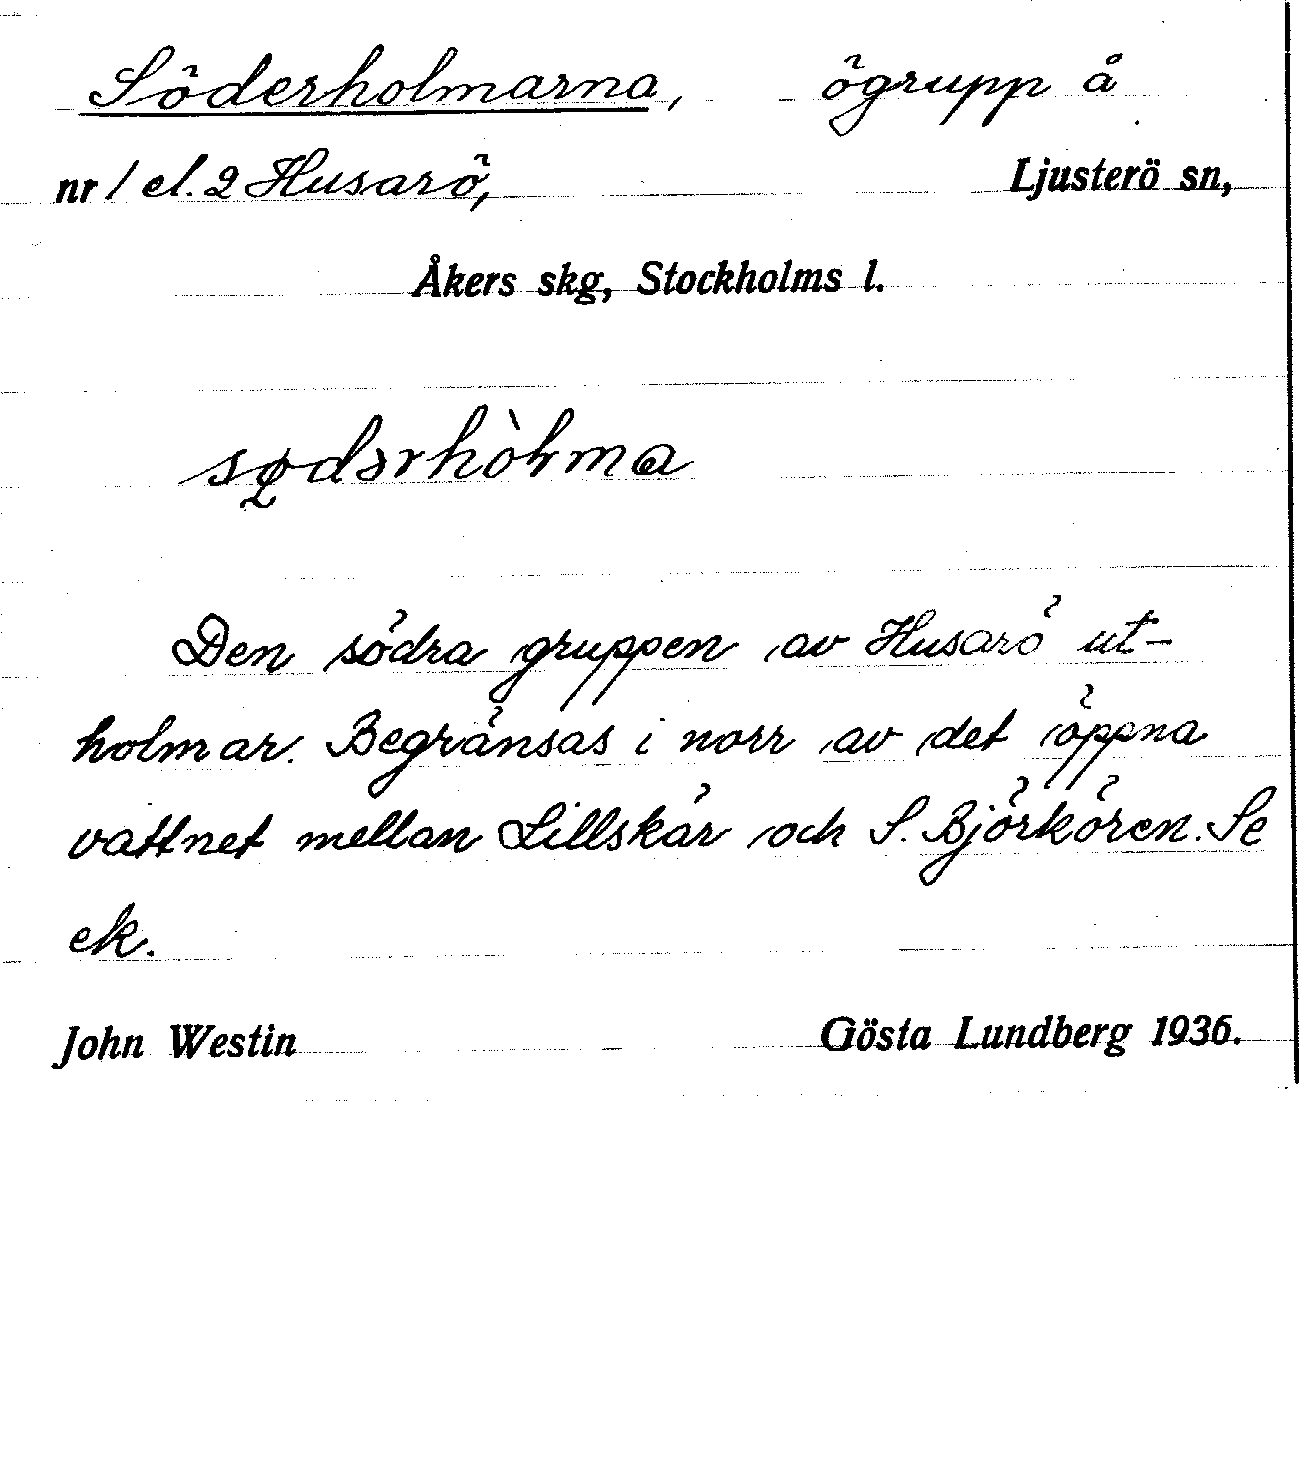 Söderholmarna, ögrupp å
nr 1 el. 2 Husarö, Ljusterö sn,
Åkers skg, Stockholms l.
sødərhòɫma
Den södra gruppen av Husarö ut-
holmar. Begränsas i norr av det öppna
vattnet mellan Lillskär och S. Björkören. Se
ek.
John Westin Gösta Lundberg 1936.